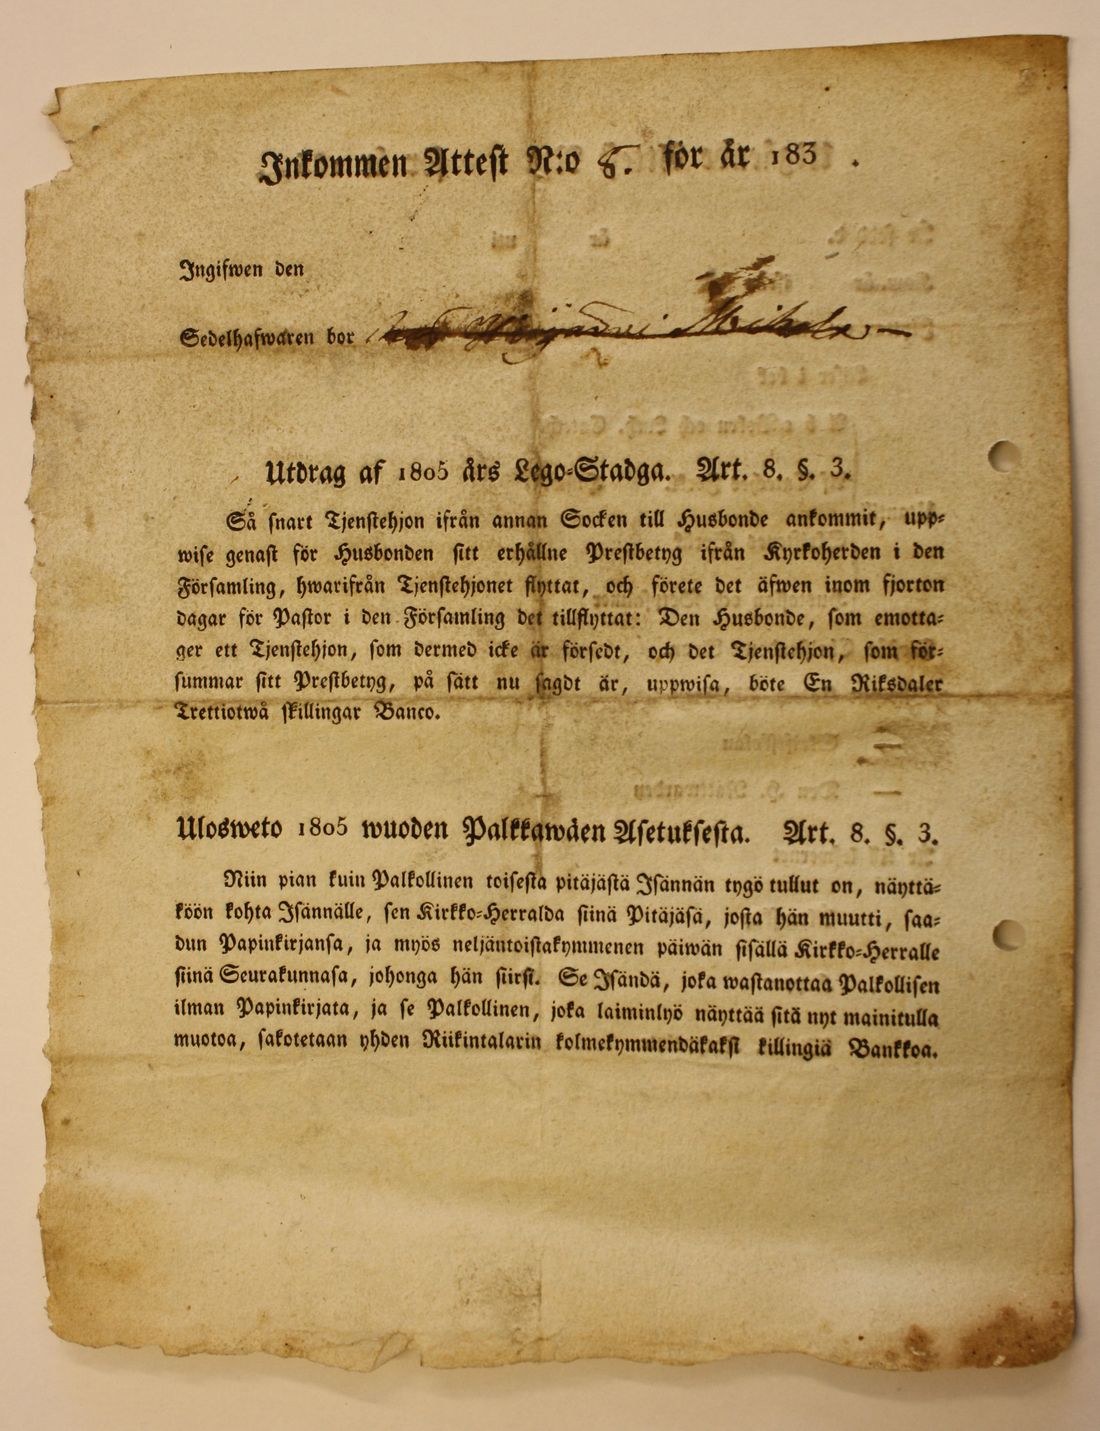 Inkommen Attest N:o 8. för år 183 .
Ingifwen den
Sedelhafwaren bor
Utdrag af 1805 års Lego=Stadga. Art. 8. §. 3.
Så snart Tjenstehjon ifrån annan Socken till Husbonde ankommit, upp=
wise genast för Husbonden sitt erhållne Prestbetyg ifrån Kyrkoherden i den
Församling, hwarifrån Tjenstehjonet flyttat, och förete det äfwen inom fjorton
dagar för Pastor i den Församling det tillflyttat: Den Husbonde, som emotta=
ger ett Tjenstehjon, som dermed icke är försedt, och det Tjenstehjon, som för=
summar sitt Prestbetyg, på sätt nu sagdt är, uppwisa, böte En Riksdaler
Trettiotwå skillingar Banco.
Ulosweto 1805 wuoden Palkkawäen Asetuksesta. Art. 8. §. 3.
Niin pian kuin Palkollinen toisesta pitäjästä Isännän tygö tullut on, näyttä=
köön kohta Isännälle, sen Kirkko=Herralda siinä Pitäjäsä, josta hän muutti, saa=
dun Papinkirjansa, ja myös neljäntoistakymmenen päiwän sisällä Kirkko=Herralle
siinä Seurakunnasa, johonga hän siirsi. Se Isändä, joka wastanottaa Palkollisen
ilman Papinkirjata, ja se Palkollinen, joka laiminlyö näyttää sitä nyt mainitulla
muotoa, sakotetaan yhden Riikintalarin kolmekymmendäkaksi killingiä Bankkoa.